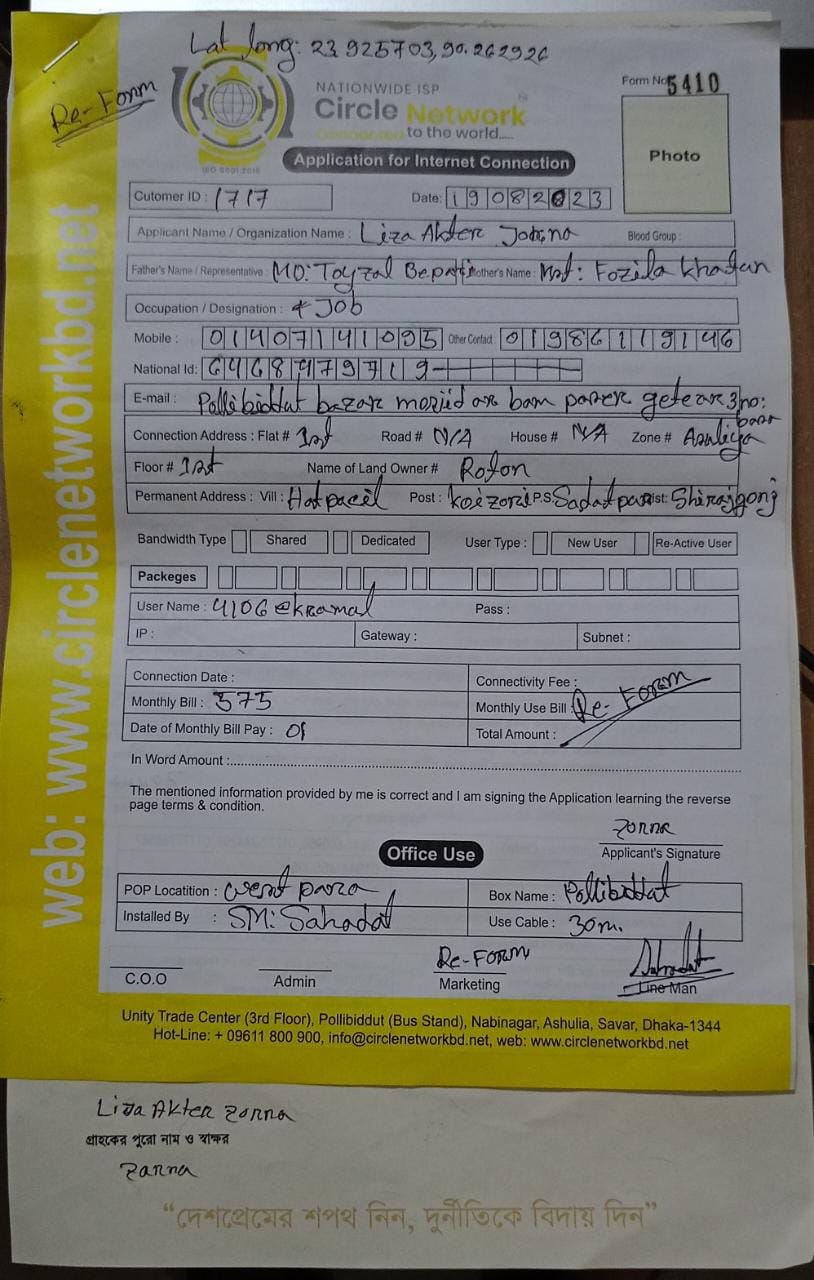 Lat long: 23.925703,90.262926
Re-Form
NATIONWIDE ISP
Form No 5410
Circle Network
Connected to the world.....
ISO 9001:2015
Application for Internet Connection
Photo
Cutomer ID : 1717 Date: 19082023
Applicant Name / Organization Name : Liza Akter Blood Group :
Father's Name / Representative : MD: Toyzal Bepari Mother's Name : Mst: Fozila Khatun
Occupation / Designation : Job
Mobile : 01407141095 Other Contact : 01986119146
National Id: 6468779719
E-mail : Pollibiddut bazar mosjid ar bam paser geter 3no: basa
Connection Address : Flat # 1st Road # N/A House # N/A Zone # Asuliya
Floor # 1st Name of Land Owner # Roton
Permanent Address : Vill : Hatpacil Post : Koizori P.S. Dist: Shirajgonj
Bandwidth Type Shared Dedicated User Type : New User Re-Active User
Packeges
User Name : 4106@kkamal Pass :
IP : Gateway : Subnet :
Connection Date : Connectivity Fee :
Monthly Bill : 575 Monthly Use Bill : Re-Form
Date of Monthly Bill Pay : 01 Total Amount :
In Word Amount :
The mentioned information provided by me is correct and I am signing the Application learning the reverse
page terms & condition.
Zorna
Applicant's Signature
Office Use
POP Locatition : West para Box Name : Pollibiddut
Installed By : SM: Sahadat Use Cable : 30m.
Re-Form Sahadat
C.O.O Admin Marketing Line Man
Unity Trade Center (3rd Floor), Pollibiddut (Bus Stand), Nabinagar, Ashulia, Savar, Dhaka-1344
Hot-Line: + 09611 800 900, info@circlenetworkbd.net, web: www.circlenetworkbd.net
web: www.circlenetworkbd.net
Liza Akter Zorna
গ্রাহকের পুরো নাম ও স্বাক্ষর
Zarna
“দেশপ্রেমের শপথ নিন, দুর্নীতিকে বিদায় দিন”